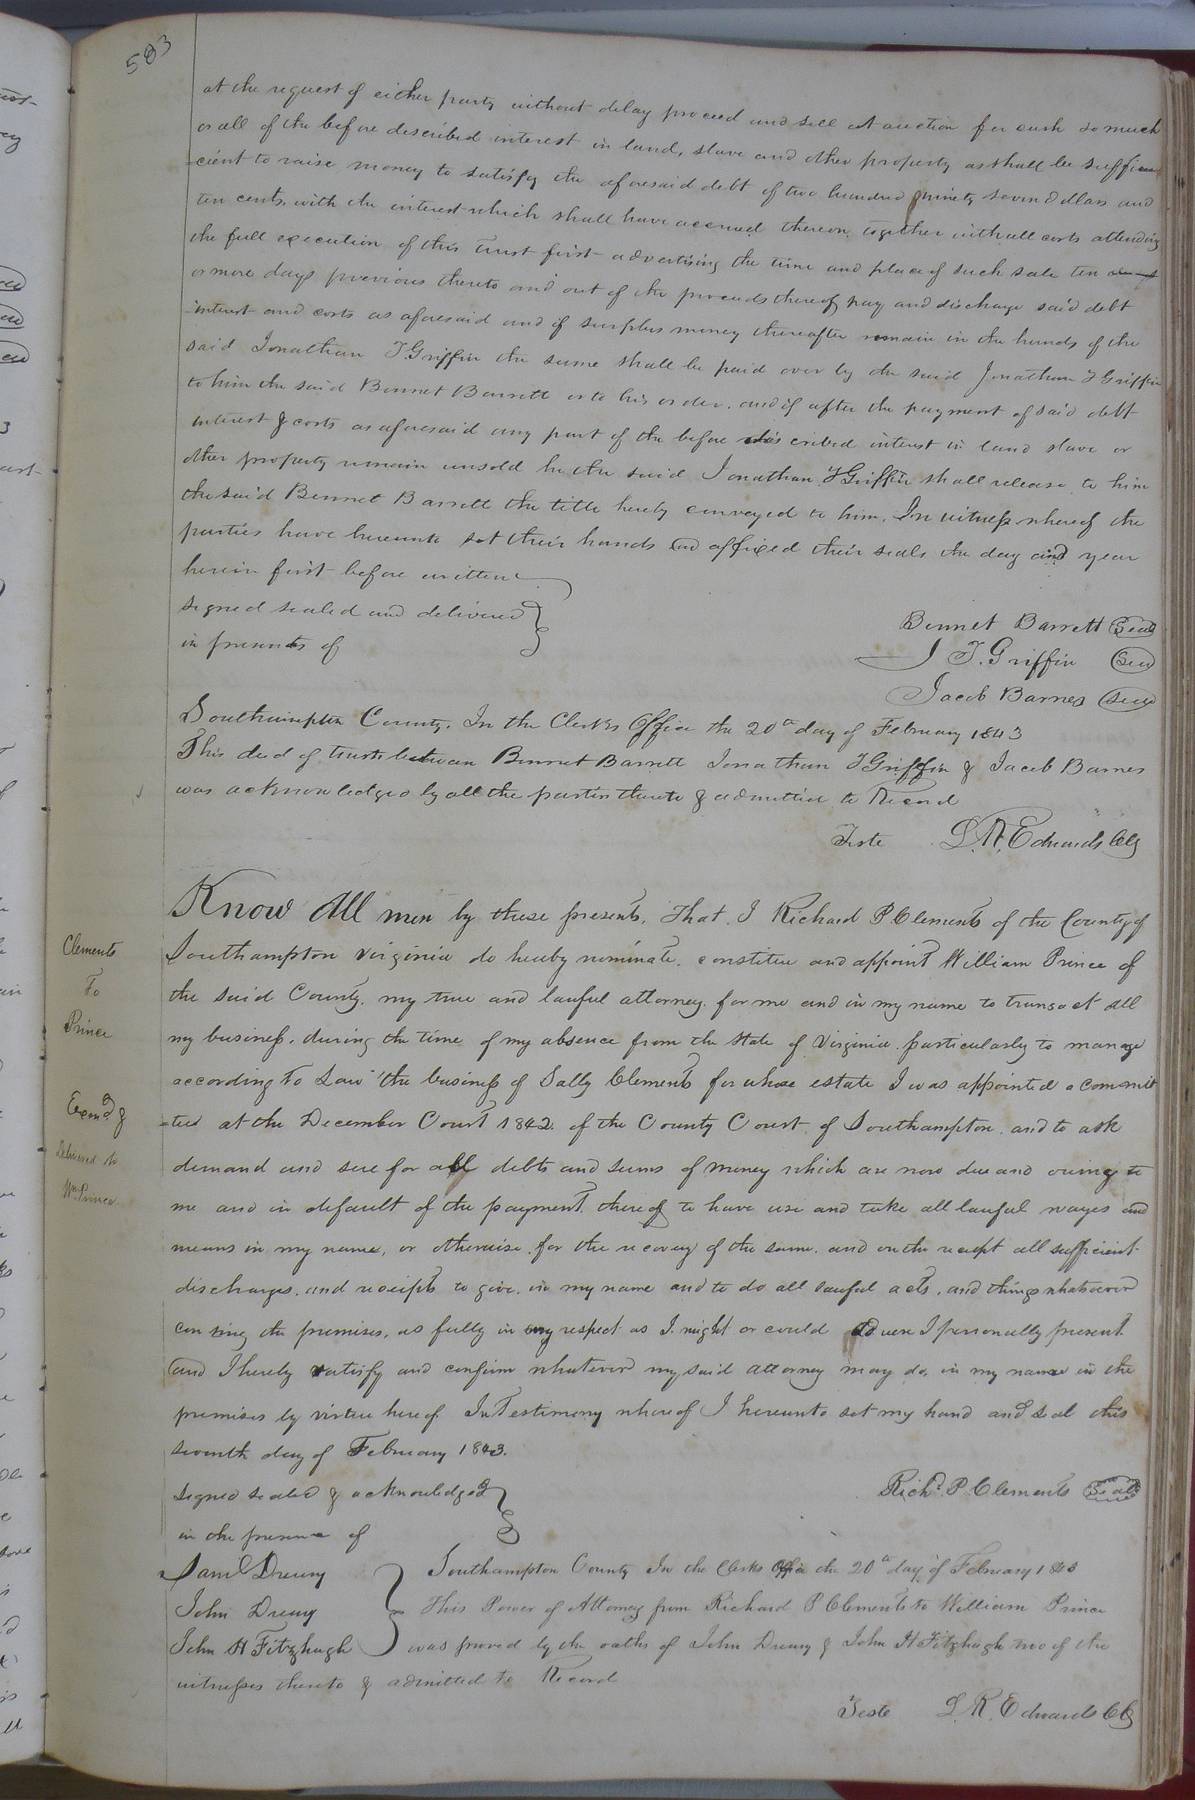 593
at the request of either party without delay proceed and sell at auction for cash so much
or all of the before described interest in land, slave and other property as shall be suffi
cient to raise money to satisfy the aforesaid debt of two hundred & ninety seven dollars and
ten cents, with the interest which shall have accrued thereon together with all costs attending
the full execution of this trust first advertising the time and place of such sale ten
or more days previous thereto and out of the proceeds thereof pay and discharge said debt
interest and costs as aforesaid and if surplus money thereafter remain in the hands of the
said Jonathan T Griffin the same shall be paid over by the said Jonathan T Griffin
to him the said Bennet Barrett or to his order. and if after the payment of said debt
interest & costs as aforesaid any part of the before described interest in land slave or
other property remain unsold he the said Jonathan T Griffin shall release to him
the said Bennet Barrett the title hereby conveyed to him. In witness whereof the
parties have hereunto set their hands and affixed their seals the day and year
herein first before written
signed sealed and delivered
in presents of
Bennet Barrett Seal
J T. Griffin Seal
Jacob Barnes Seal
Southampton County. In the Clerks Office the 20th day of February 1843
This deed of trust between Bennet Barrett Jonathan T Griffin & Jacob Barnes
was acknowledged by all the parties thereto & admitted to Record
Teste L. R. Edwards Clk
Clements
To
Prince
Exmd &
Delivered to
Wm Prince
Know All men by these presents, That I Richard P Clements of the County of
Southampton Virginia do hereby nominate, constitue and appoint William Prince of
the said County, my true and lawful attorney, for me and in my name to transact all
my business, during the time of my absence from the state of Virginia particularly to manage
according to Law the business of Sally Clements for whose estate I was appointed a commit
=tee at the December Court 1842 of the County Court of Southampton and to ask
demand and sue for all debts and sums of money which are now due and owing to
me and in default of the payment thereof to have use and take all lawful ways and
means in my name, or otherwise for the recovery of the same, and on the receipt all sufficient
discharges, and receipts to give, in my name and to do all lawful acts, and things whatsoever
con sing the premises, as fully in any respect as I might or could do were I personally present
and I hereby ratisfy and confirm whatever my said attorney may do, in my name in the
premises by virtue hereof In Testimony whereof I hereunto set my hand and seal this
seventh day of February 1843.
signed sealed & acknowledged
in the presence of
Richd P Clements Seal
Saml Drewry
John Drewry
John H Fitzhugh
Southampton County In the Clerks Office the 20th day of February 1843
This Power of Attorney from Richard P Clements to William Prince
was proved by the oaths of John Drewry & John H Fitzhugh two of the
witnesses thereto & admitted to Record
Teste L. R. Edwards Clk